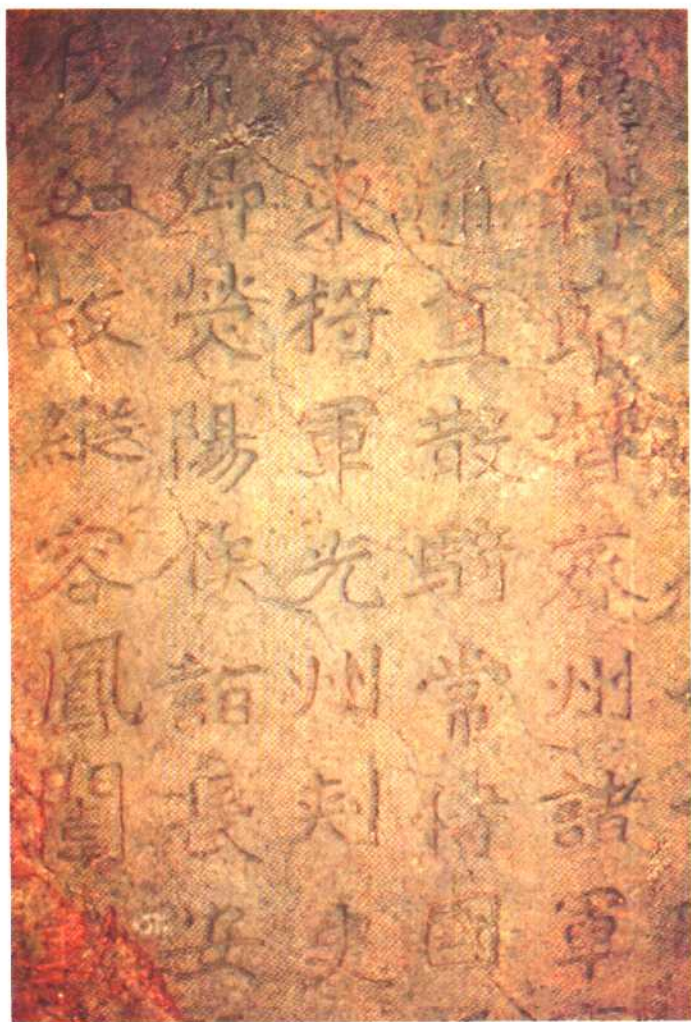 使持節督齊州諸軍
誠通直散騎常侍國
平東將軍光州刺史
常卿熒陽侯詣長安
侯如故縱容鳳闈